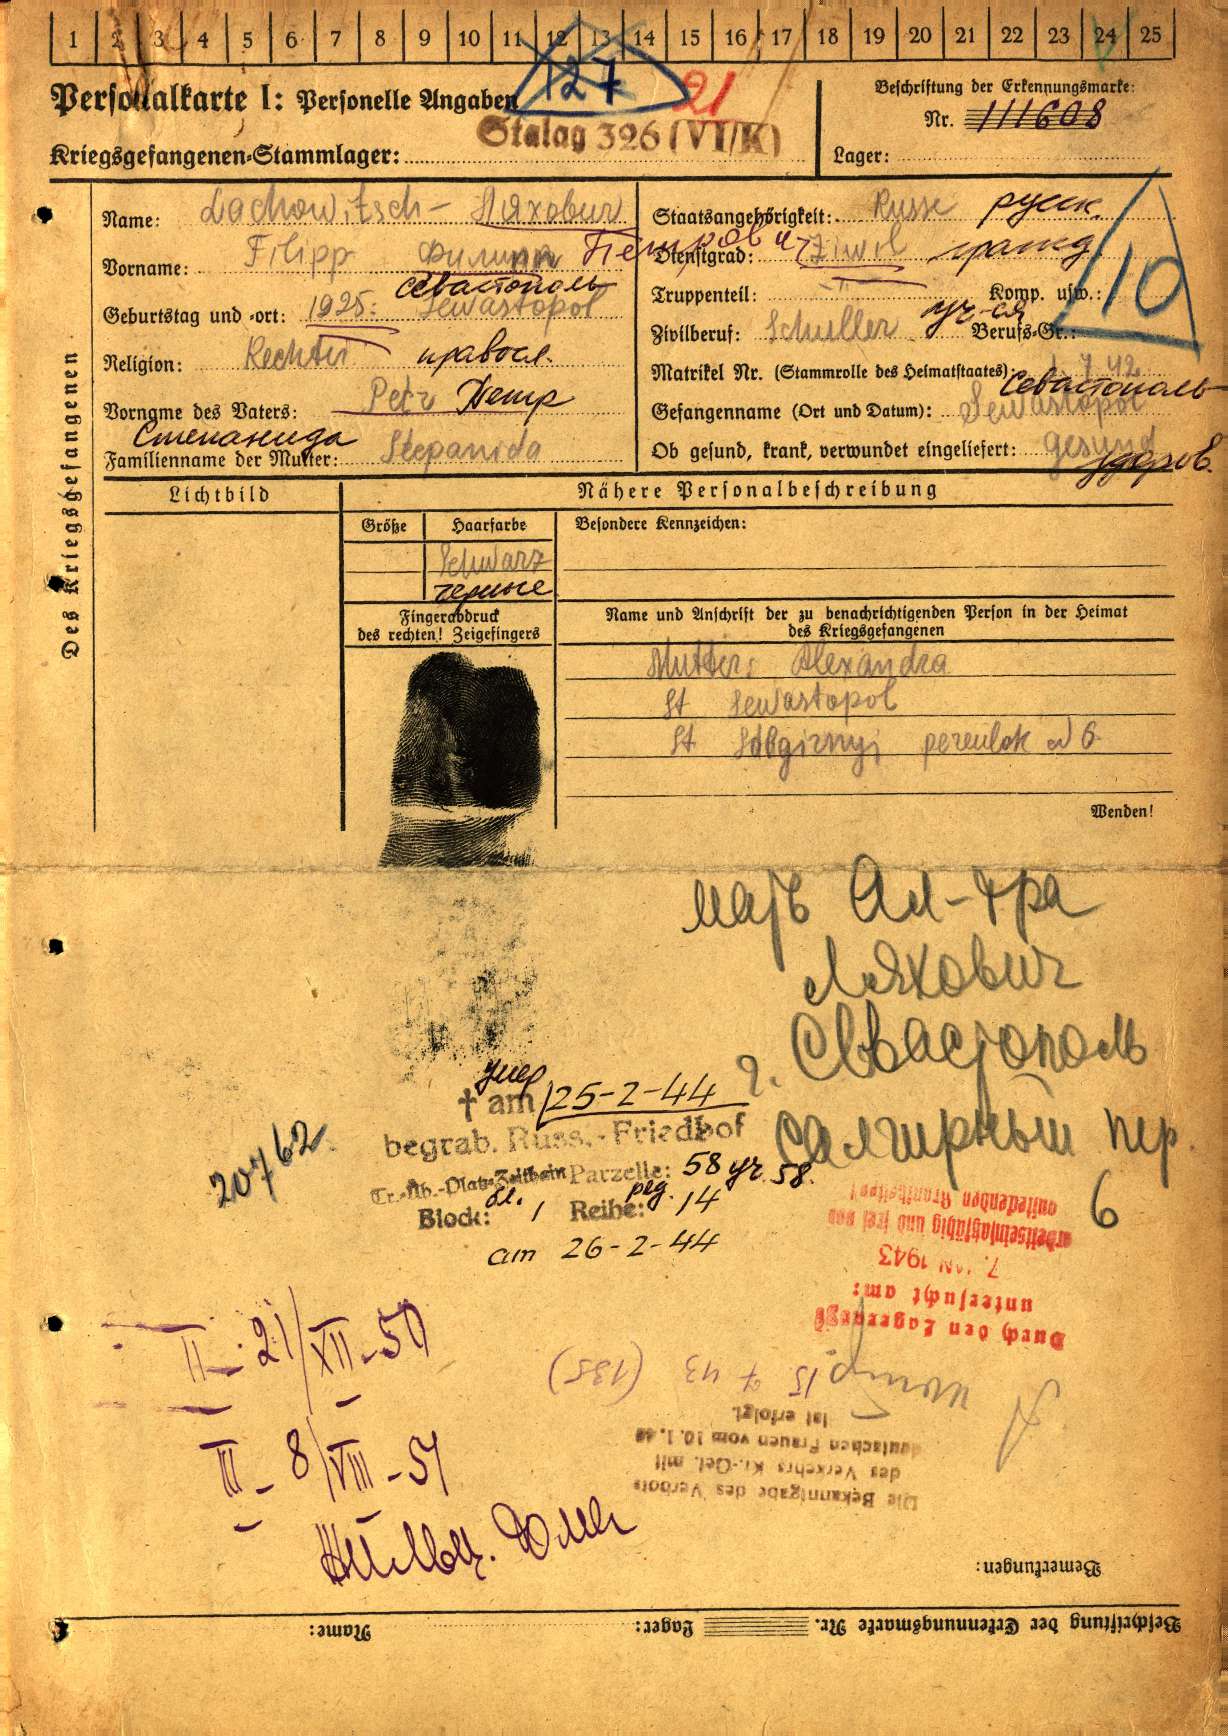 1 2 3 4 5 6 7 8 9 10 11 12 13 14 15 16 17 18 19 20 21 22 23 24 25
127 21
Personalkarte I: Personelle Angaben
Beschriftung der Erkennungsmarke:
Nr. 111608
Kriegsgefangenen-Stammlager: Stalag 326 (VI/K)
Lager:
Des Kriegsgefangenen
Name: Lachowitsch - Ляхович
Vorname: Filipp Филипп Петрович
Севастополь
Geburtstag und -ort: 1925. Sewastopol
Religion: Rechtt. правосл.
Vorname des Vaters: Petr Петр
Степанида
Familienname der Mutter: Stepanida
Staatsangehörigkeit: Russe русск.
Dienstgrad: Ziwil гражд
Truppenteil: Komp. usw.:
Zivilberuf: Schuller уч-ся Berufs-Gr.:
10
Matrikel Nr. (Stammrolle des Heimatstaates): 1. 7. 42
Севастополь
Gefangenname (Ort und Datum): Sewastopol
Ob gesund, krank, verwundet eingeliefert: gesund
здоров.
Lichtbild
Nähere Personalbeschreibung
Größe Haarfarbe Besondere Kennzeichen:
Schwarz
черные
Fingerabdruck
des rechten! Zeigefingers
Name und Anschrift der zu benachrichtigenden Person in der Heimat
des Kriegsgefangenen
Mutter: Alexandra
St Sewastopol
St pereulok 6
Wenden!
мать Ал-дра
Ляхович
г. Севастополь
Салгирный пер.
6
умер
† am 25-2-44
begrab. Russ.-Friedhof
Tr.-Üb.-Platz Zeithain Parzelle: 58 уч. 58.
бл. ряд.
Block: 1 Reihe: 14
am 26-2-44
20762
arbeitseinsatzfähig und frei von
ansteckenden Krankheiten!
7. JAN 1943
Durch den Lagerarzt
untersucht am:
II - 21/XII - 50
III - 8/VIII - 51
15 7 43 (135)
Die Bekanntgabe des Verbots
des Verkehrs Kr.-Gef. mit
deutschen Frauen vom 10.1.40
ist erfolgt.
Bemerkungen:
Beschriftung der Erkennungsmarke Nr. Lager: Name: